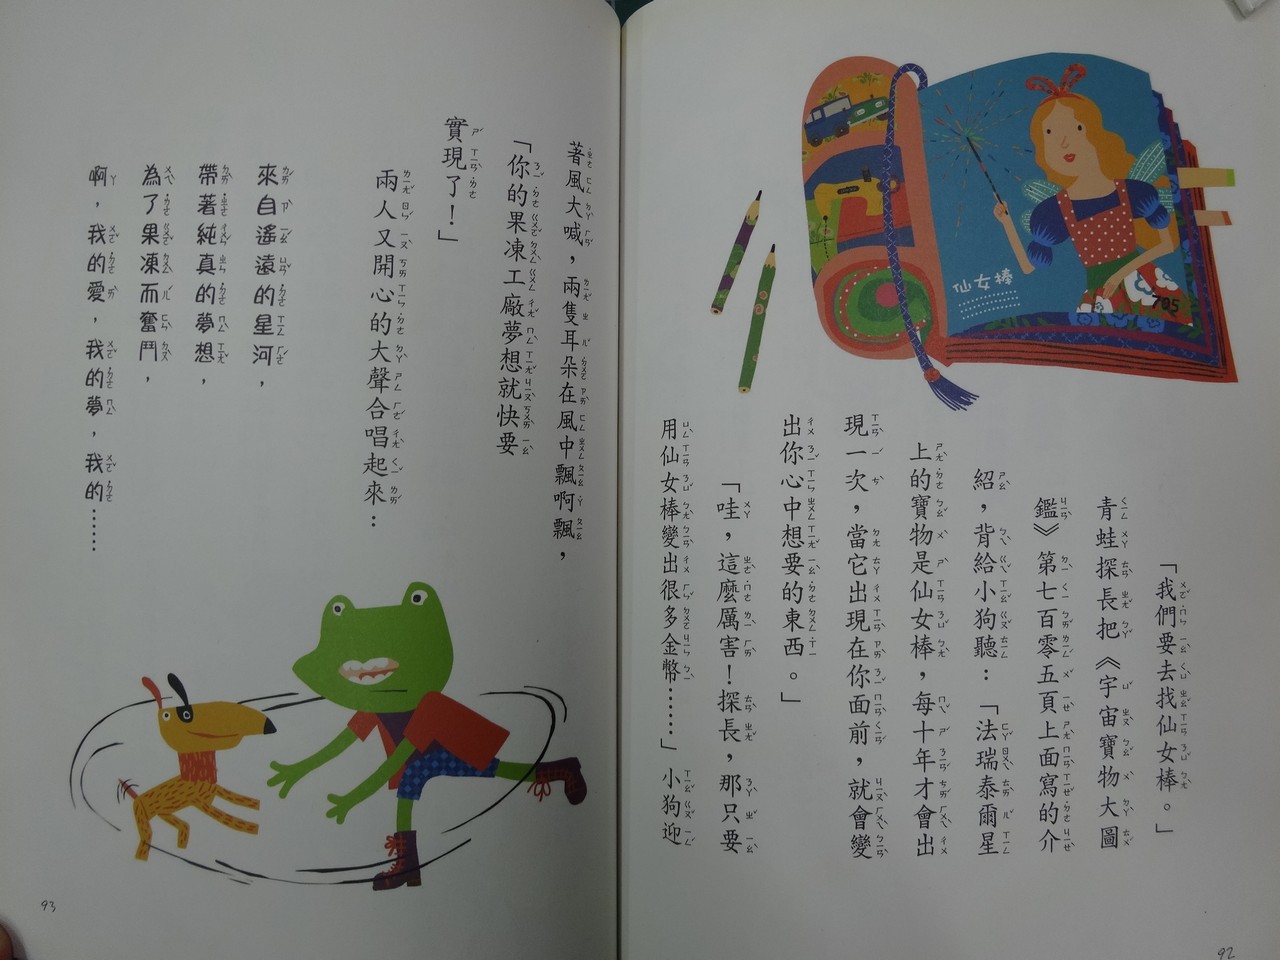 「我們要去找仙女棒。」
青蛙探長把《宇宙寶物大圖
鑑》第七百零五頁上面寫的介
紹，背給小狗聽：「法瑞泰爾星
上的寶物是仙女棒，每十年才會出
現一次，當它出現在你面前，就會變
出你心中想要的東西。」
「哇，這麼厲害！探長，那只要
用仙女棒變出很多金幣……」小狗迎
仙女棒
705
92
著風大喊，兩隻耳朵在風中飄啊飄，
「你的果凍工廠夢想就快要
實現了！」
兩人又開心的大聲合唱起來：
來自遙遠的星河，
帶著純真的夢想，
為了果凍而奮鬥，
啊，我的愛，我的夢，我的……
93